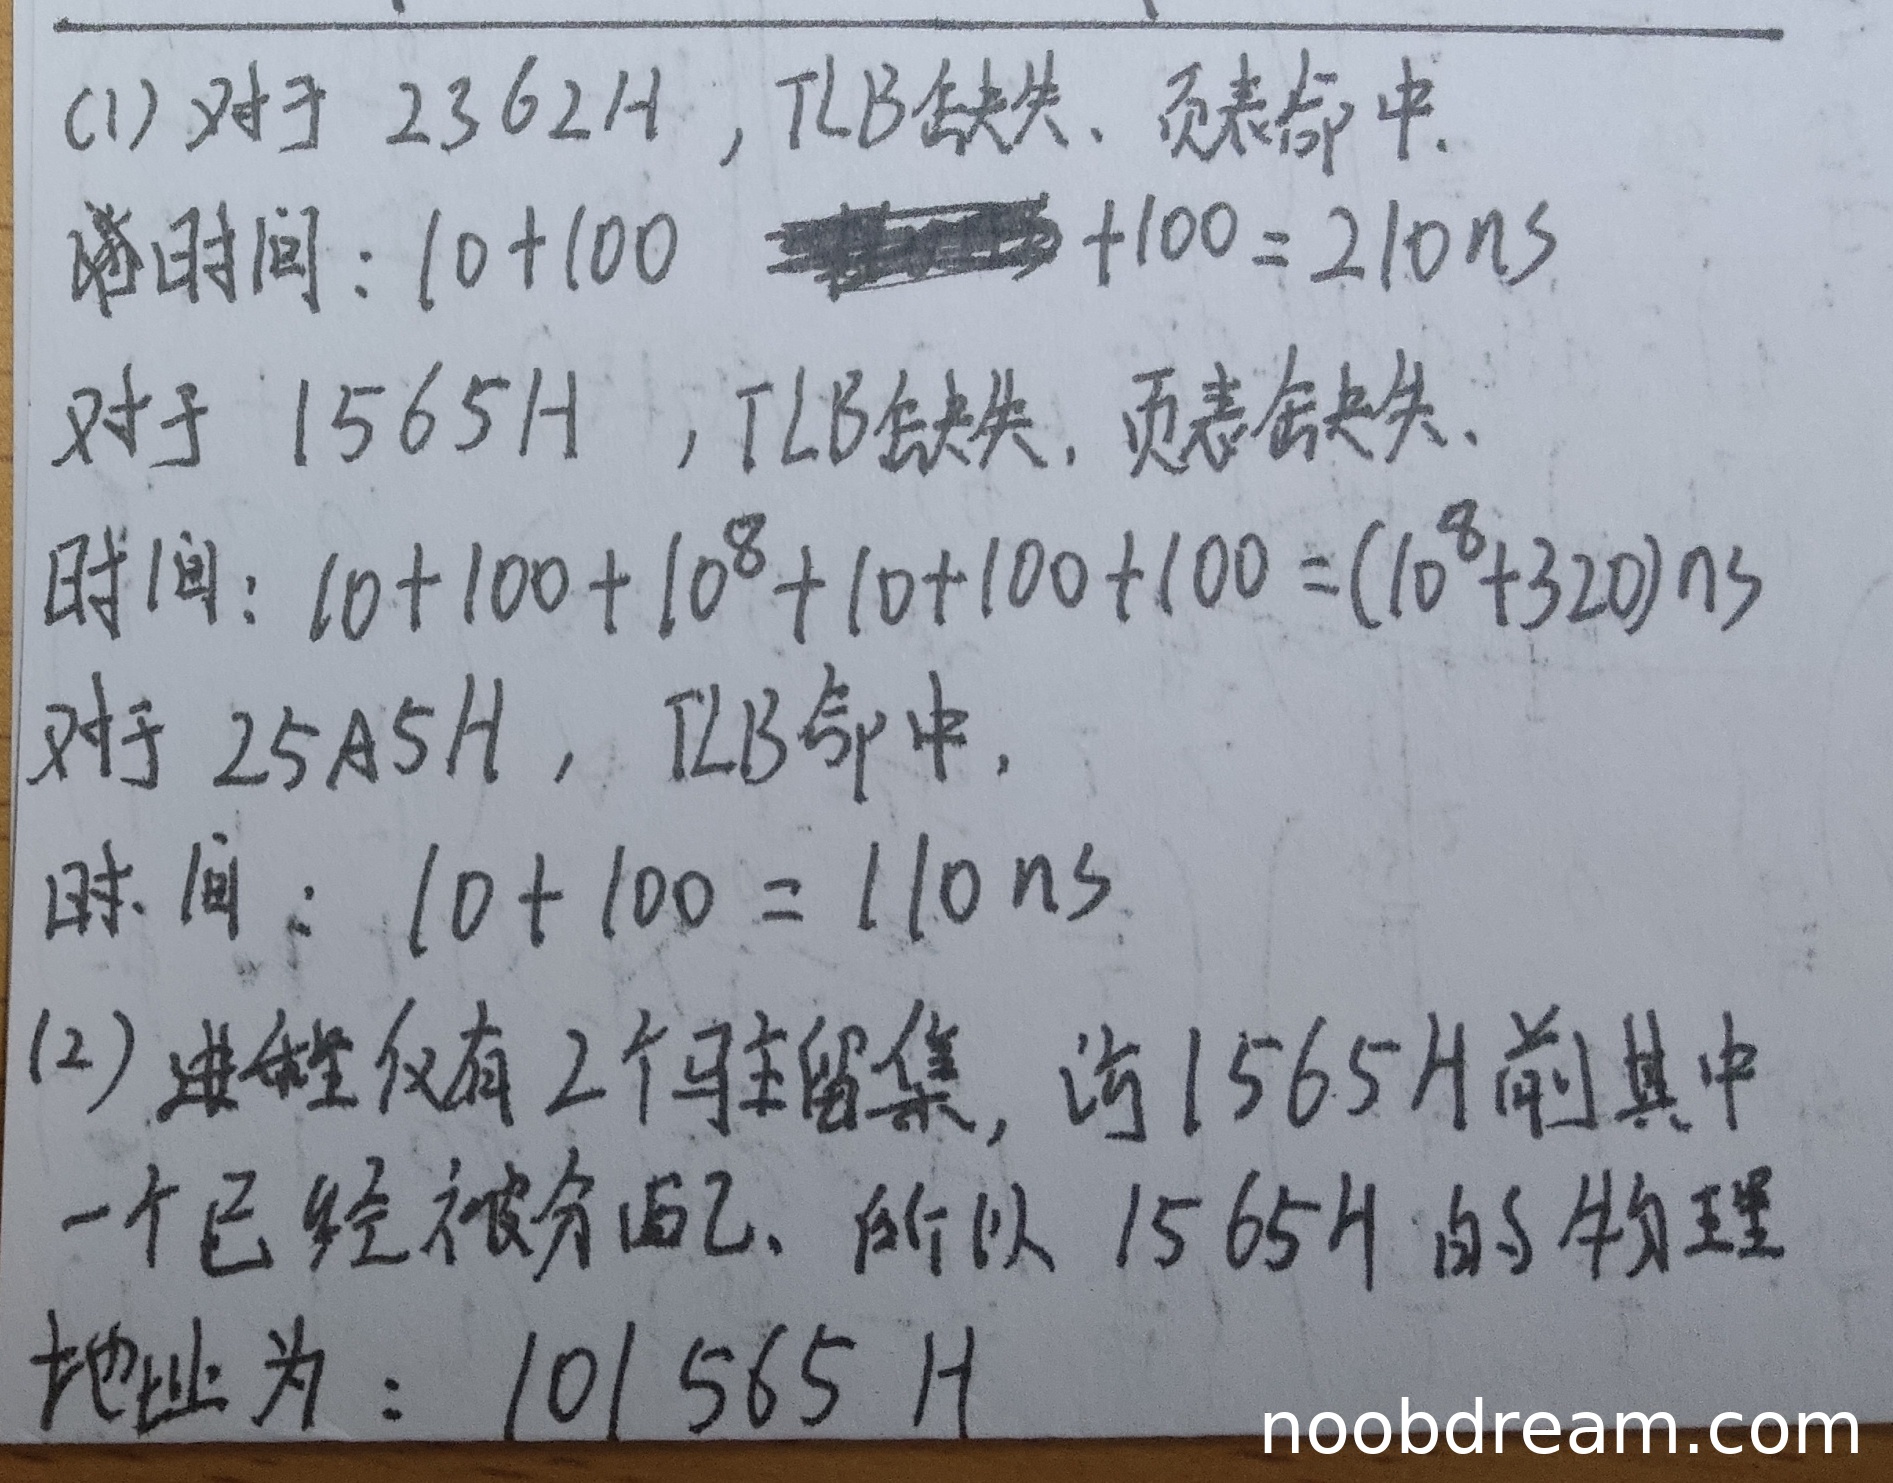 (1) 对于 2362H , TLB缺失、页表命中.
时间: 10+100 +100=210ns
对于 1565H , TLB缺失、页表缺失、
时间: 10+100+10⁸+10+100+100=(10⁸+320)ns
对于 25A5H , TLB命中.
时间: 10+100=110ns
(2) 进程仅有2个驻留集, 访1565H前其中
一个已经被分配、所以 1565H 的物理
地址为: 101565H
noobdream.com